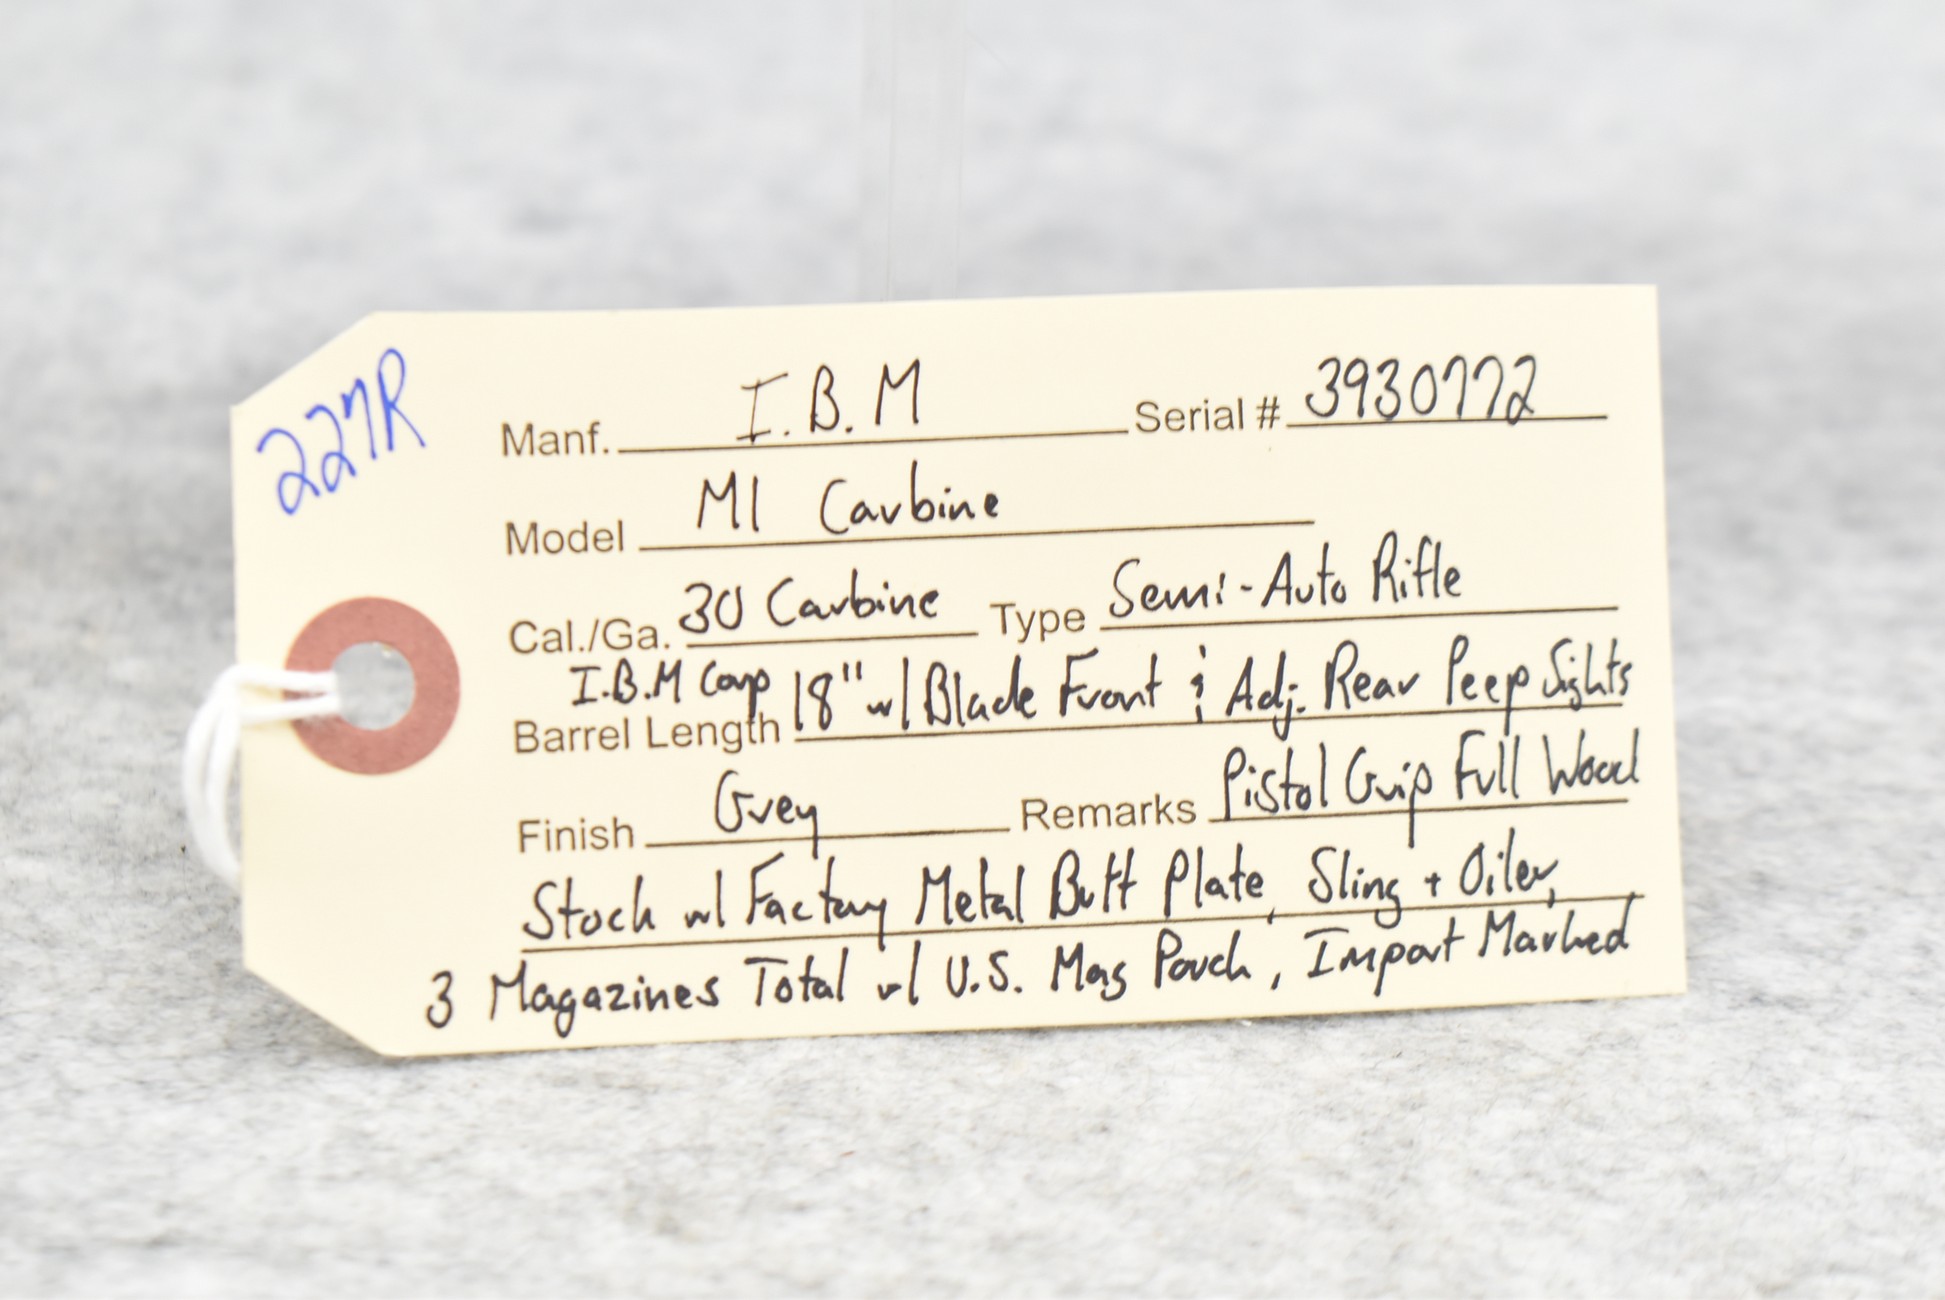 227R
Manf. I.B.M Serial # 3930772
Model M1 Carbine
Cal./Ga. 30 Carbine Type Semi-Auto Rifle
I.B.M Corp
Barrel Length 18" w/ Blade Front & Adj. Rear Peep Sights
Finish Grey Remarks Pistol Grip Full Wood
Stock w/ Factory Metal Butt Plate, Sling + Oiler,
3 Magazines Total w/ U.S. Mag Pouch, Import Marked